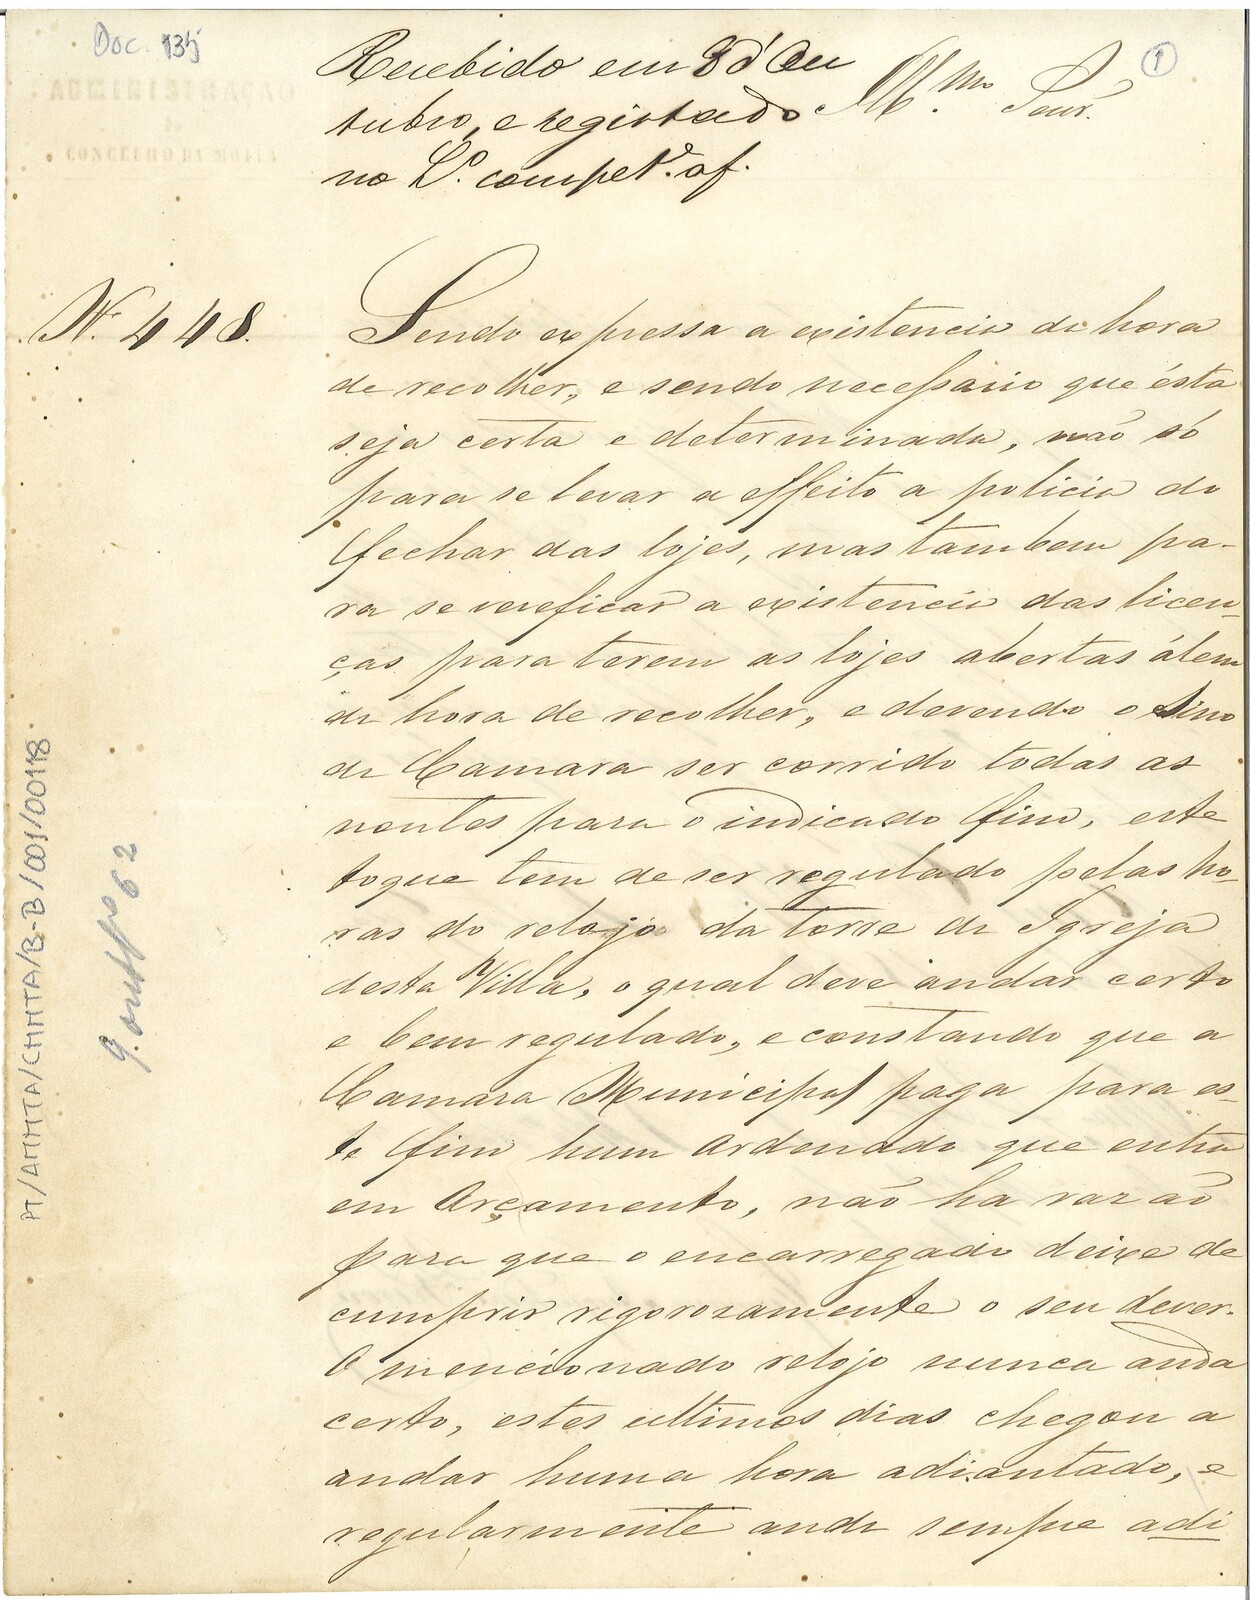 Doc. 135
①
ADMINISTRAÇÃO
DO
CONCELHO DA MOITA
Recebido em 8 d'Ou
tubro, e registado
no L.º compet.e of.
Ill.mo Senr.
N.º 448.
Sendo expressa a existencia da hora
de recolher, e sendo necessario que ésta
seja certa e determinada, não só
para se levar a effeito a policia do
fechar das lojes, mas tambem pa-
ra se vereficar a existencia das licen-
ças para terem as lojes abertas álem
da hora de recolher, e devendo o Sino
da Camara ser corrido todas as
noutes para o indicado fim, este
toque tem de ser regulado pelas ho-
ras do relojo da torre da Igreja
desta Villa, o qual deve andar certo
e bem regulado, e constando que a
Camara Municipal paga para es-
te fim hum Ordenado que entra
em Orçamento, não ha razão
para que o encarregado deixe de
cumprir rigorozamente o seu dever.
O mencionado relojo nunca anda
certo, estes ultimos dias chegou a
andar huma hora adiantado, e
regularmente anda sempre adi
PT/AMMTA/CMMTA/B-B/001/00118
9. out 62